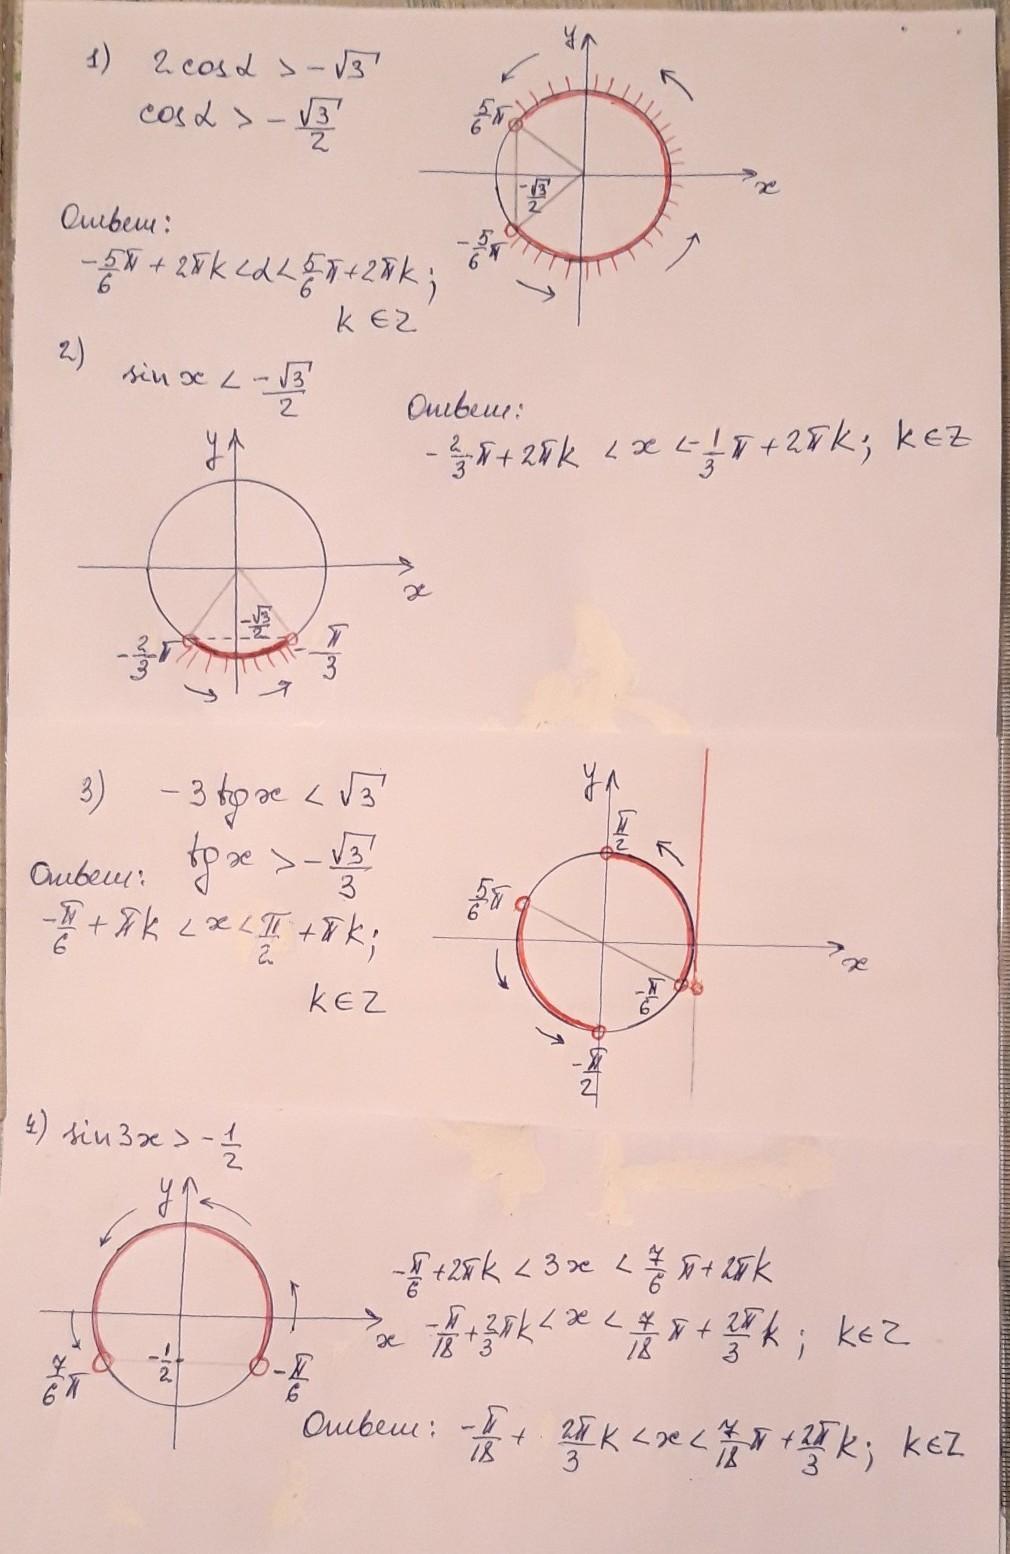 1) 2cosα > -√3
cosα > -√3/2
y
5/6π
-√3/2
x
-5/6π
Ответ:
-5/6π + 2πk < α < 5/6π + 2πk;
k ∈ Z
2)
sin x < -√3/2
Ответ:
-2/3π + 2πk < x < -1/3π + 2πk; k ∈ Z
y
x
-√3/2
-2/3π
-π/3
3) -3tgx < √3
tgx > -√3/3
Ответ:
-π/6 + πk < x < π/2 + πk;
k ∈ Z
y
π/2
5/6π
x
-π/6
-π/2
4) sin3x > -1/2
y
x
-1/2
7/6π
-π/6
-π/6 + 2πk < 3x < 7/6π + 2πk
-π/18 + 2/3πk < x < 7/18π + 2π/3k; k ∈ Z
Ответ: -π/18 + 2π/3k < x < 7/18π + 2π/3k; k ∈ Z